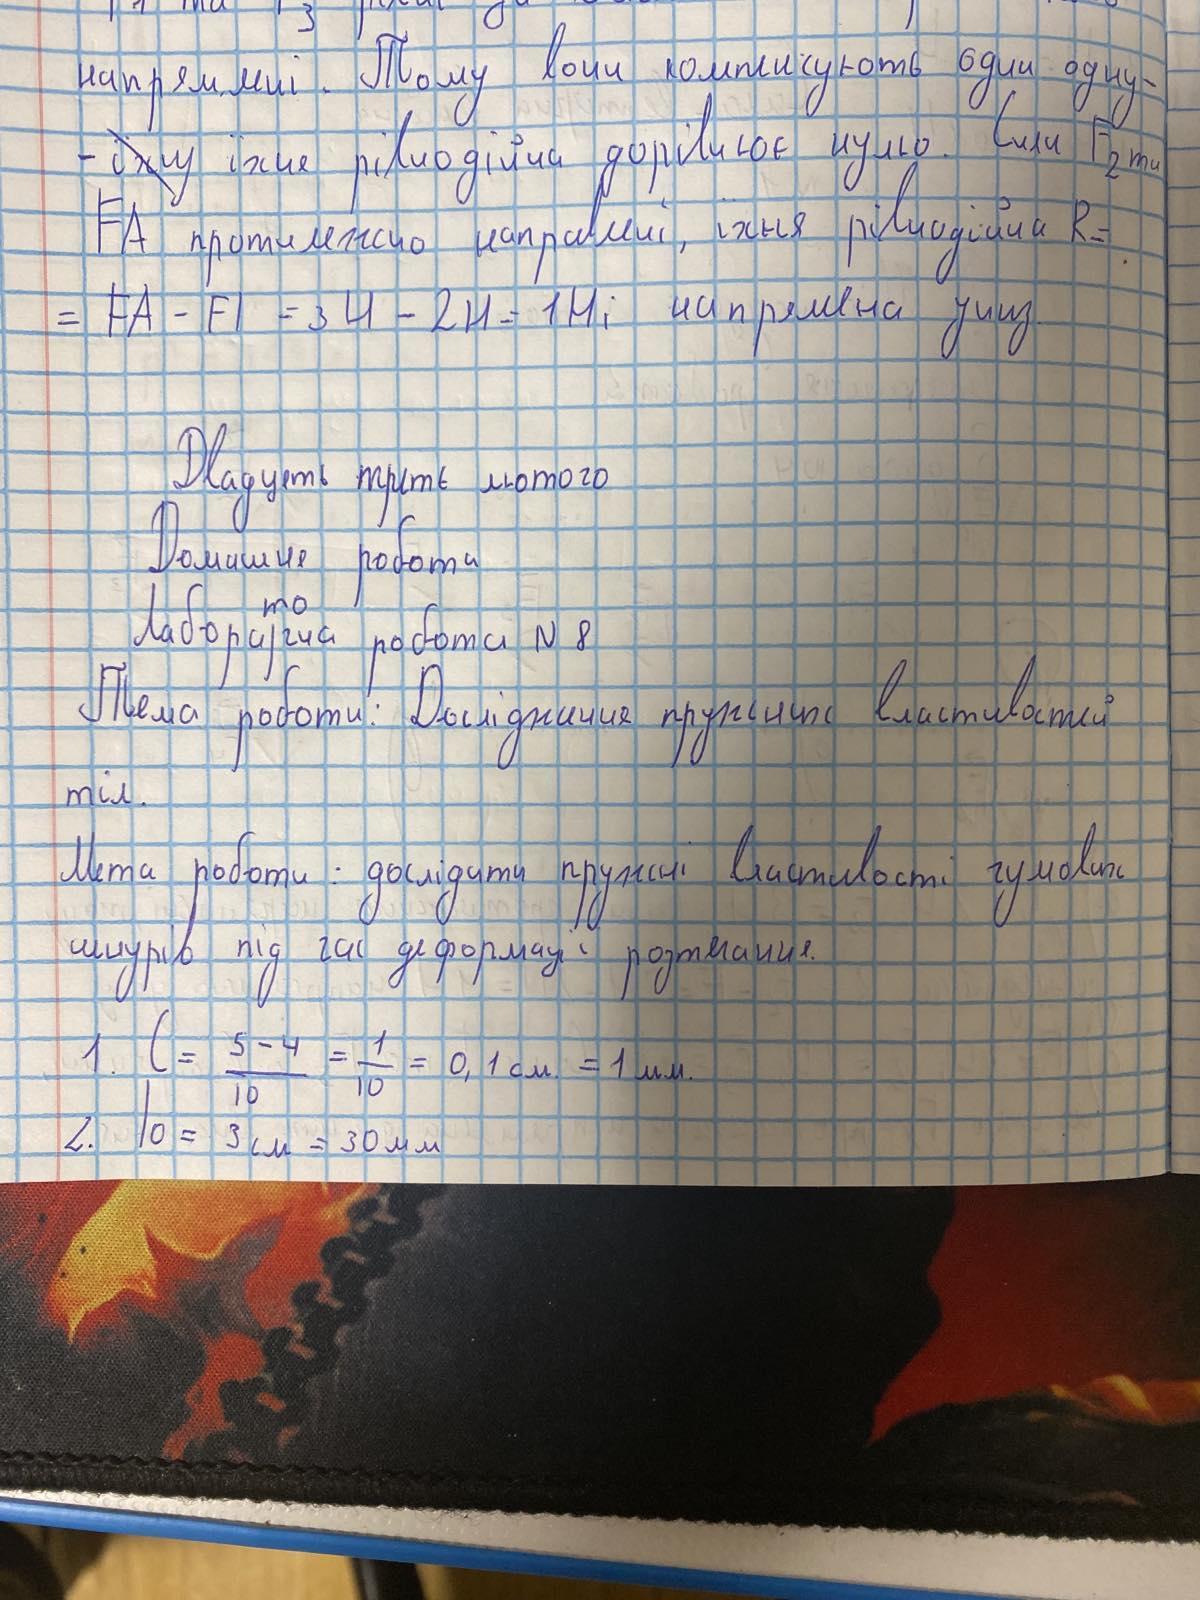 напрямлені. Тому вони компенсують один одну-
- їхня рівнодійна дорівнює нулю. Сили F2 та
FA протилежно напрамлені, їхня рівнодійна R=
= FA - F1 = 3Н - 2Н = 1Н і напрямлена униз.
Двадцять третє лютого
Домашня робота
Лабораторна робота N 8
Тема роботи: Дослідження пружних властивостей
тіл.
Мета роботи: дослідити пружні властивості гумових
шнурів під час деформації розтягання.
1. C = 5-4/10 = 1/10 = 0,1 см. = 1 мм.
2. l0 = 3 см = 30 мм